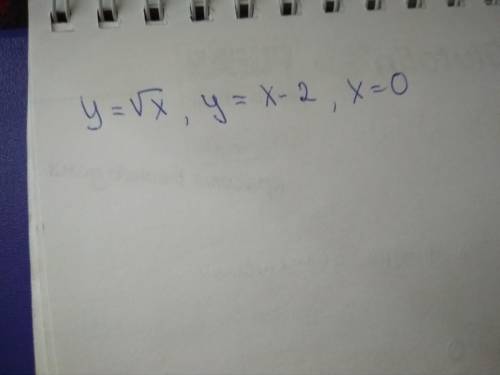 y = √x , y = x - 2 , x = 0